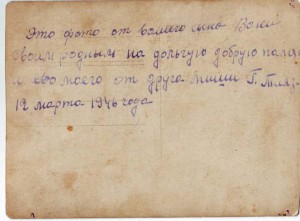 Это фото от вашего сына Вани
Своим родным на дольгую добрую памят
и его моего от друга Миши Г.
12 марта 1946 года